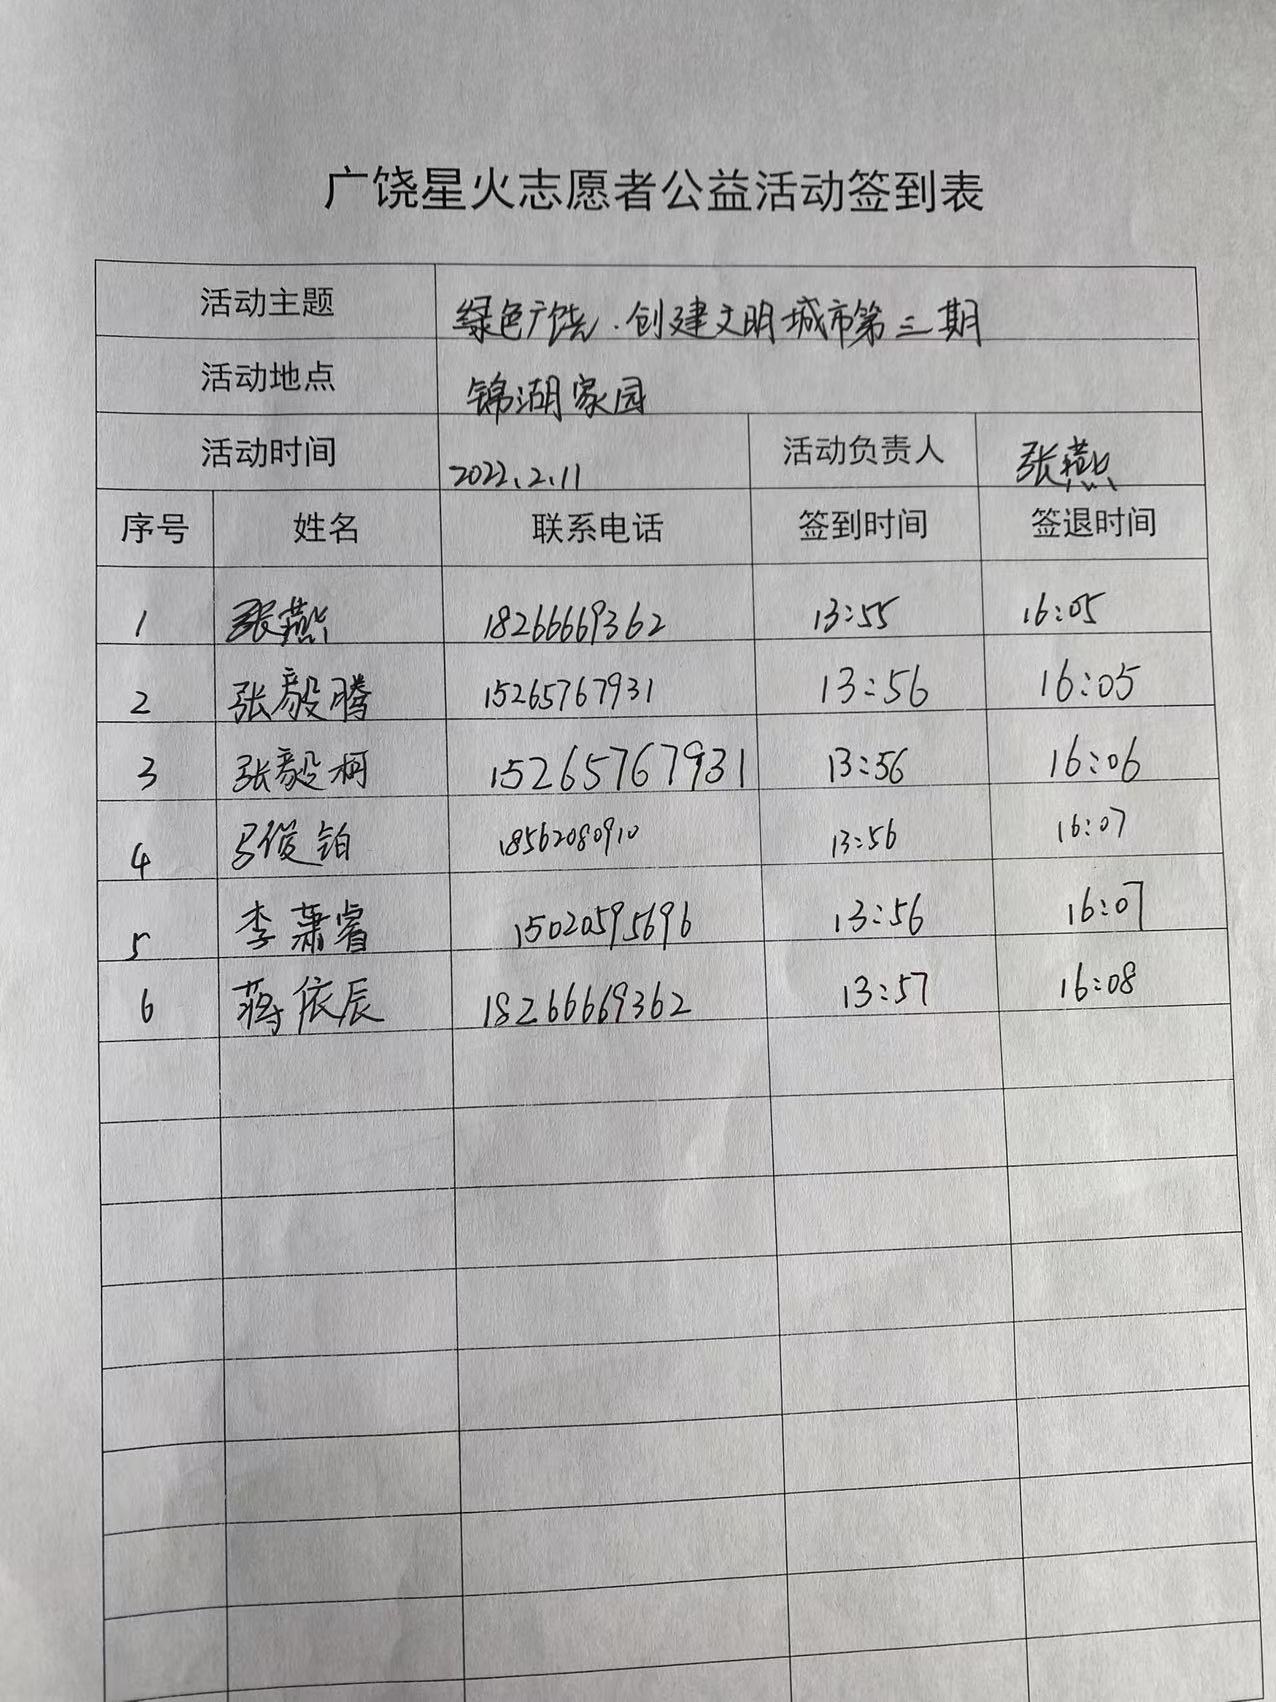 广饶星火志愿者公益活动签到表
活动主题 绿色广饶.创建文明城市第三期
活动地点 锦湖家园
活动时间 2022.2.11 活动负责人 张燕
序号 姓名 联系电话 签到时间 签退时间
1 张燕 18266669362 13:55 16:05
2 张毅腾 15265767931 13:56 16:05
3 张毅柯 15265767931 13:56 16:06
4 马俊铂 18562080910 13:56 16:07
5 李萧睿 15020595696 13:56 16:07
6 蒋依辰 18266669362 13:57 16:08